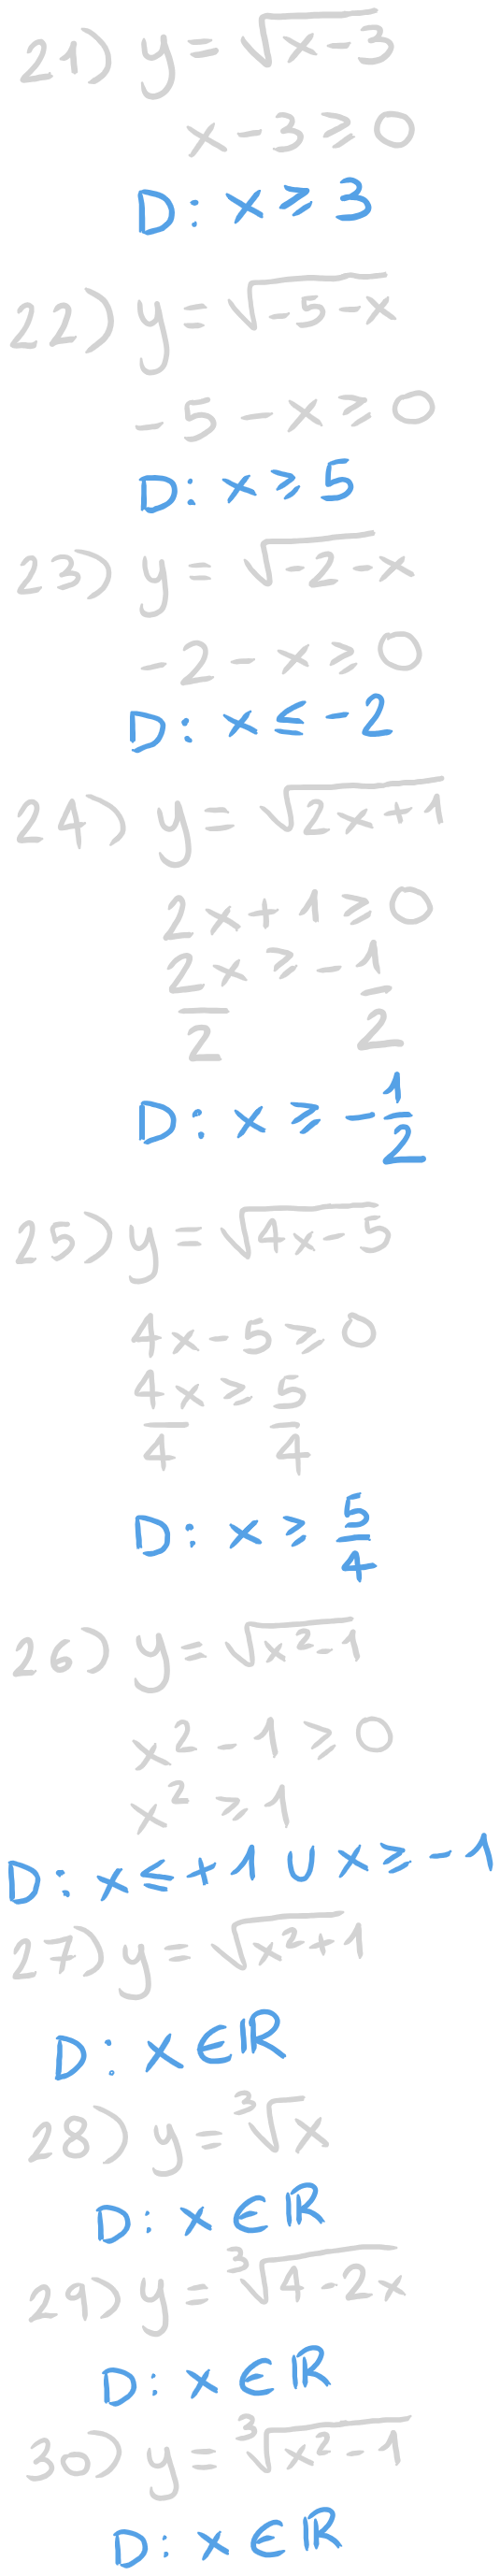 21) y = √(x-3)
x - 3 ≥ 0
D: x ≥ 3
22) y = √(-5-x)
-5 - x ≥ 0
D: x ≥ 5
23) y = √(-2-x)
-2 - x ≥ 0
D: x ≤ -2
24) y = √(2x+1)
2x + 1 ≥ 0
2x/2 ≥ -1/2
D: x ≥ -1/2
25) y = √(4x-5)
4x - 5 ≥ 0
4x/4 ≥ 5/4
D: x ≥ 5/4
26) y = √(x²-1)
x² - 1 ≥ 0
x² ≥ 1
D: x ≤ +1 ∪ x ≥ -1
27) y = √(x²+1)
D: x ∈ ℝ
28) y = ∛x
D: x ∈ ℝ
29) y = ∛(4-2x)
D: x ∈ ℝ
30) y = ∛(x²-1)
D: x ∈ ℝ